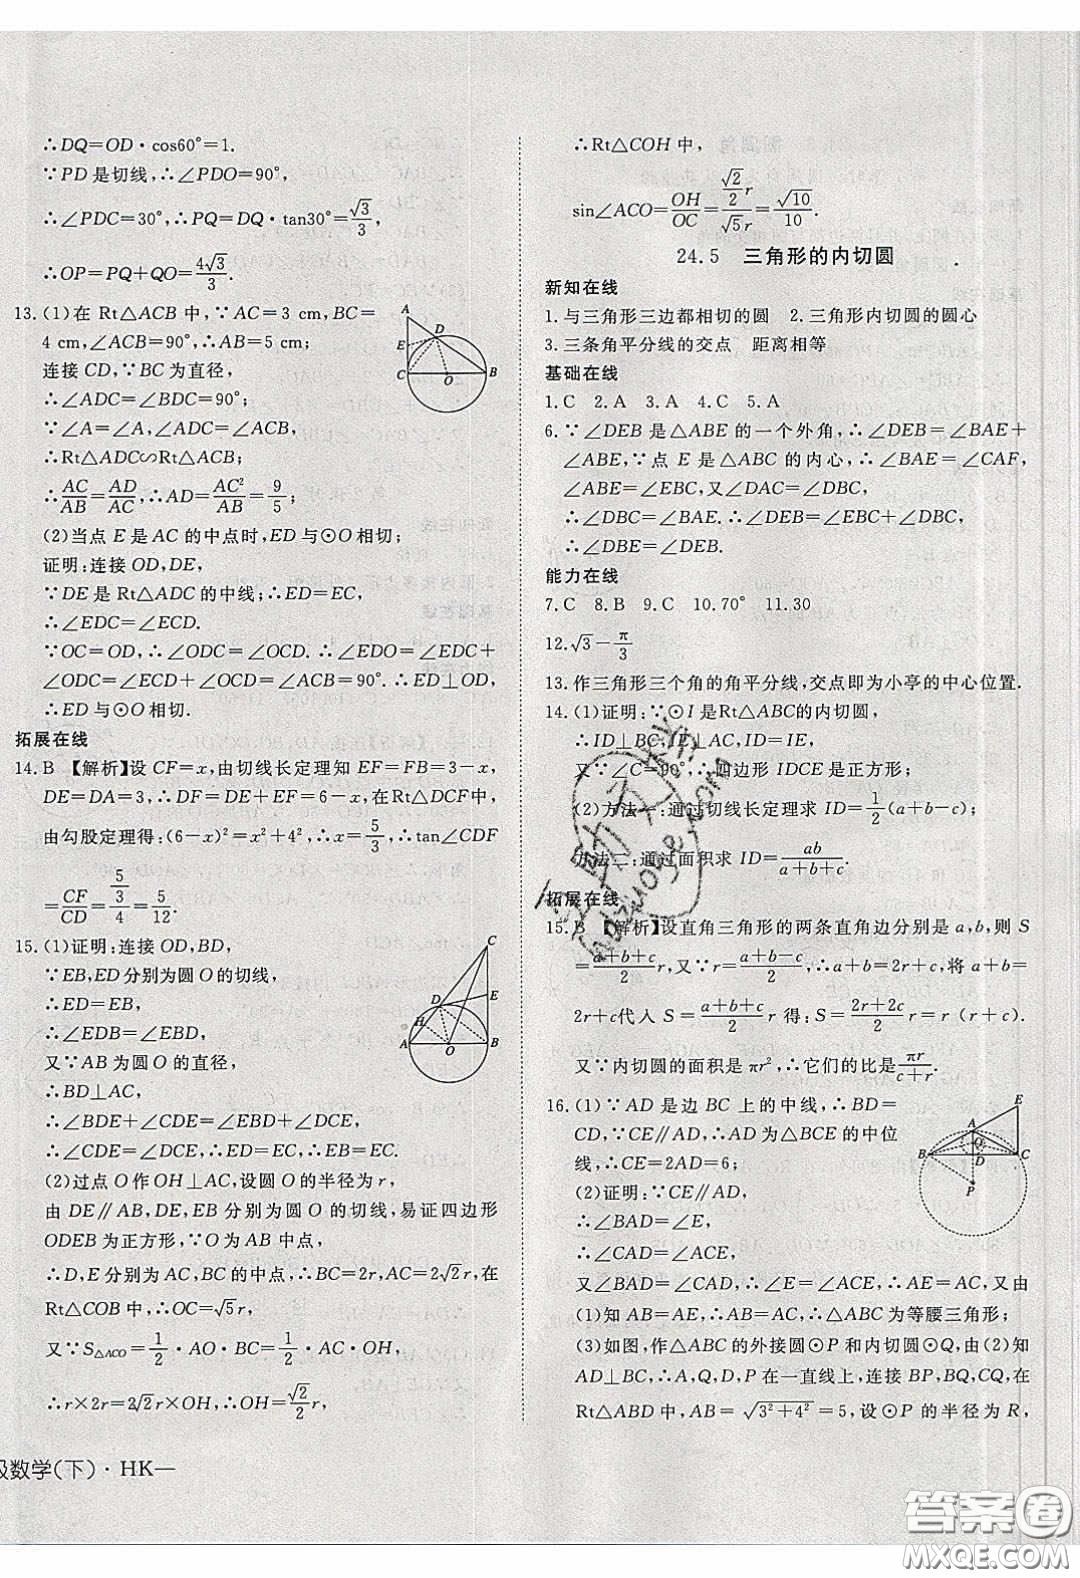 ∴DQ=OD·cos60°=1.
∵PD是切线,∴∠PDO=90°,
∴∠PDC=30°,∴PQ=DQ·tan30°=√3/3,
∴OP=PQ+QO=4√3/3.
13.(1)在Rt△ACB中,∵AC=3 cm,BC=
4 cm,∠ACB=90°,∴AB=5 cm;
连接CD,∵BC为直径,
∴∠ADC=∠BDC=90°;
∵∠A=∠A,∠ADC=∠ACB,
∴Rt△ADC∽Rt△ACB;
∴AC/AB=AD/AC,∴AD=AC²/AB=9/5;
(2)当点E是AC的中点时,ED与⊙O相切;
证明:连接OD,DE,
∵DE是Rt△ADC的中线;∴ED=EC,
∴∠EDC=∠ECD.
∵OC=OD,∴∠ODC=∠OCD.∴∠EDO=∠EDC+
∠ODC=∠ECD+∠OCD=∠ACB=90°.∴ED⊥OD,
∴ED与⊙O相切.
拓展在线
14.B 【解析】设CF=x,由切线长定理知EF=FB=3-x,
DE=DA=3,∴DF=DE+EF=6-x,在Rt△DCF中,
由勾股定理得:(6-x)²=x²+4²,∴x=5/3,∴tan∠CDF
=CF/CD=(5/3)/4=5/12.
15.(1)证明:连接OD,BD,
∵EB,ED分别为圆O的切线,
∴ED=EB,
∴∠EDB=∠EBD,
又∵AB为圆O的直径,
∴BD⊥AC,
∴∠BDE+∠CDE=∠EBD+∠DCE,
∴∠CDE=∠DCE,∴ED=EC,∴EB=EC.
(2)过点O作OH⊥AC,设圆O的半径为r,
由DE∥AB,DE,EB分别为圆O的切线,易证四边形
ODEB为正方形,∵O为AB中点,
∴D,E分别为AC,BC的中点,∴BC=2r,AC=2√2r,在
Rt△COB中,∴OC=√5r,
又∵S△ACO=1/2·AO·BC=1/2·AC·OH,
∴r×2r=2√2r×OH,∴OH=√2/2r,
级数学(下)·HK—
∴Rt△COH中,
sin∠ACO=OH/OC=(√2/2r)/(√5r)=√10/10.
24.5 三角形的内切圆
新知在线
1.与三角形三边都相切的圆 2.三角形内切圆的圆心
3.三条角平分线的交点 距离相等
基础在线
1.C 2.A 3.A 4.C 5.A
6.∵∠DEB是△ABE的一个外角,∴∠DEB=∠BAE+
∠ABE,∵点E是△ABC的内心,∴∠BAE=∠CAF,
∠ABE=∠CBE,又∠DAC=∠DBC,
∴∠DBC=∠BAE.
∴∠DBE=∠DEB.
能力在线
7.C 8.B 9.C 10.70° 11.30
12.√3-π/3
13.作三角形三个角的角平分线,交点即为小亭的中心位置.
14.(1)证明:∵⊙I是Rt△ABC的内切圆,
∴ID⊥BC,IE⊥AC,ID=IE,
又∵∠C=90°,∴四边形IDCE是正方形;
(2)方法一:通过切线长定理求ID=1/2(a+b-c);
方法二:通过面积求ID=ab/(a+b+c).
拓展在线
15.B 【解析】设直角三角形的两条直角边分别是a,b,则S
=(a+b+c)/2 r,又∵r=(a+b-c)/2,∴a+b=2r+c,将a+b=
2r+c代入S=(a+b+c)/2 r得:S=(2r+2c)/2 r=r(r+c).
又∵内切圆的面积是πr²,∴它们的比是πr/(c+r).
16.(1)∵AD是边BC上的中线,∴BD=
CD,∵CE∥AD,∴AD为△BCE的中位
线,∴CE=2AD=6;
(2)证明:∵CE∥AD,
∴∠BAD=∠E,
∴∠CAD=∠ACE,
又∠BAD=∠CAD,∴∠E=∠ACE,∴AE=AC,又由
(1)知AB=AE,∴AB=AC,∴△ABC为等腰三角形;
(3)如图,作△ABC的外接圆⊙P和内切圆⊙Q,由(2)知
AD⊥BC,∴A,Q,D,P在一直线上,连接BP,BQ,CQ,在
Rt△ABD中,AB=√(3²+4²)=5,设⊙P的半径为R,
答案卷
MXQE.COM